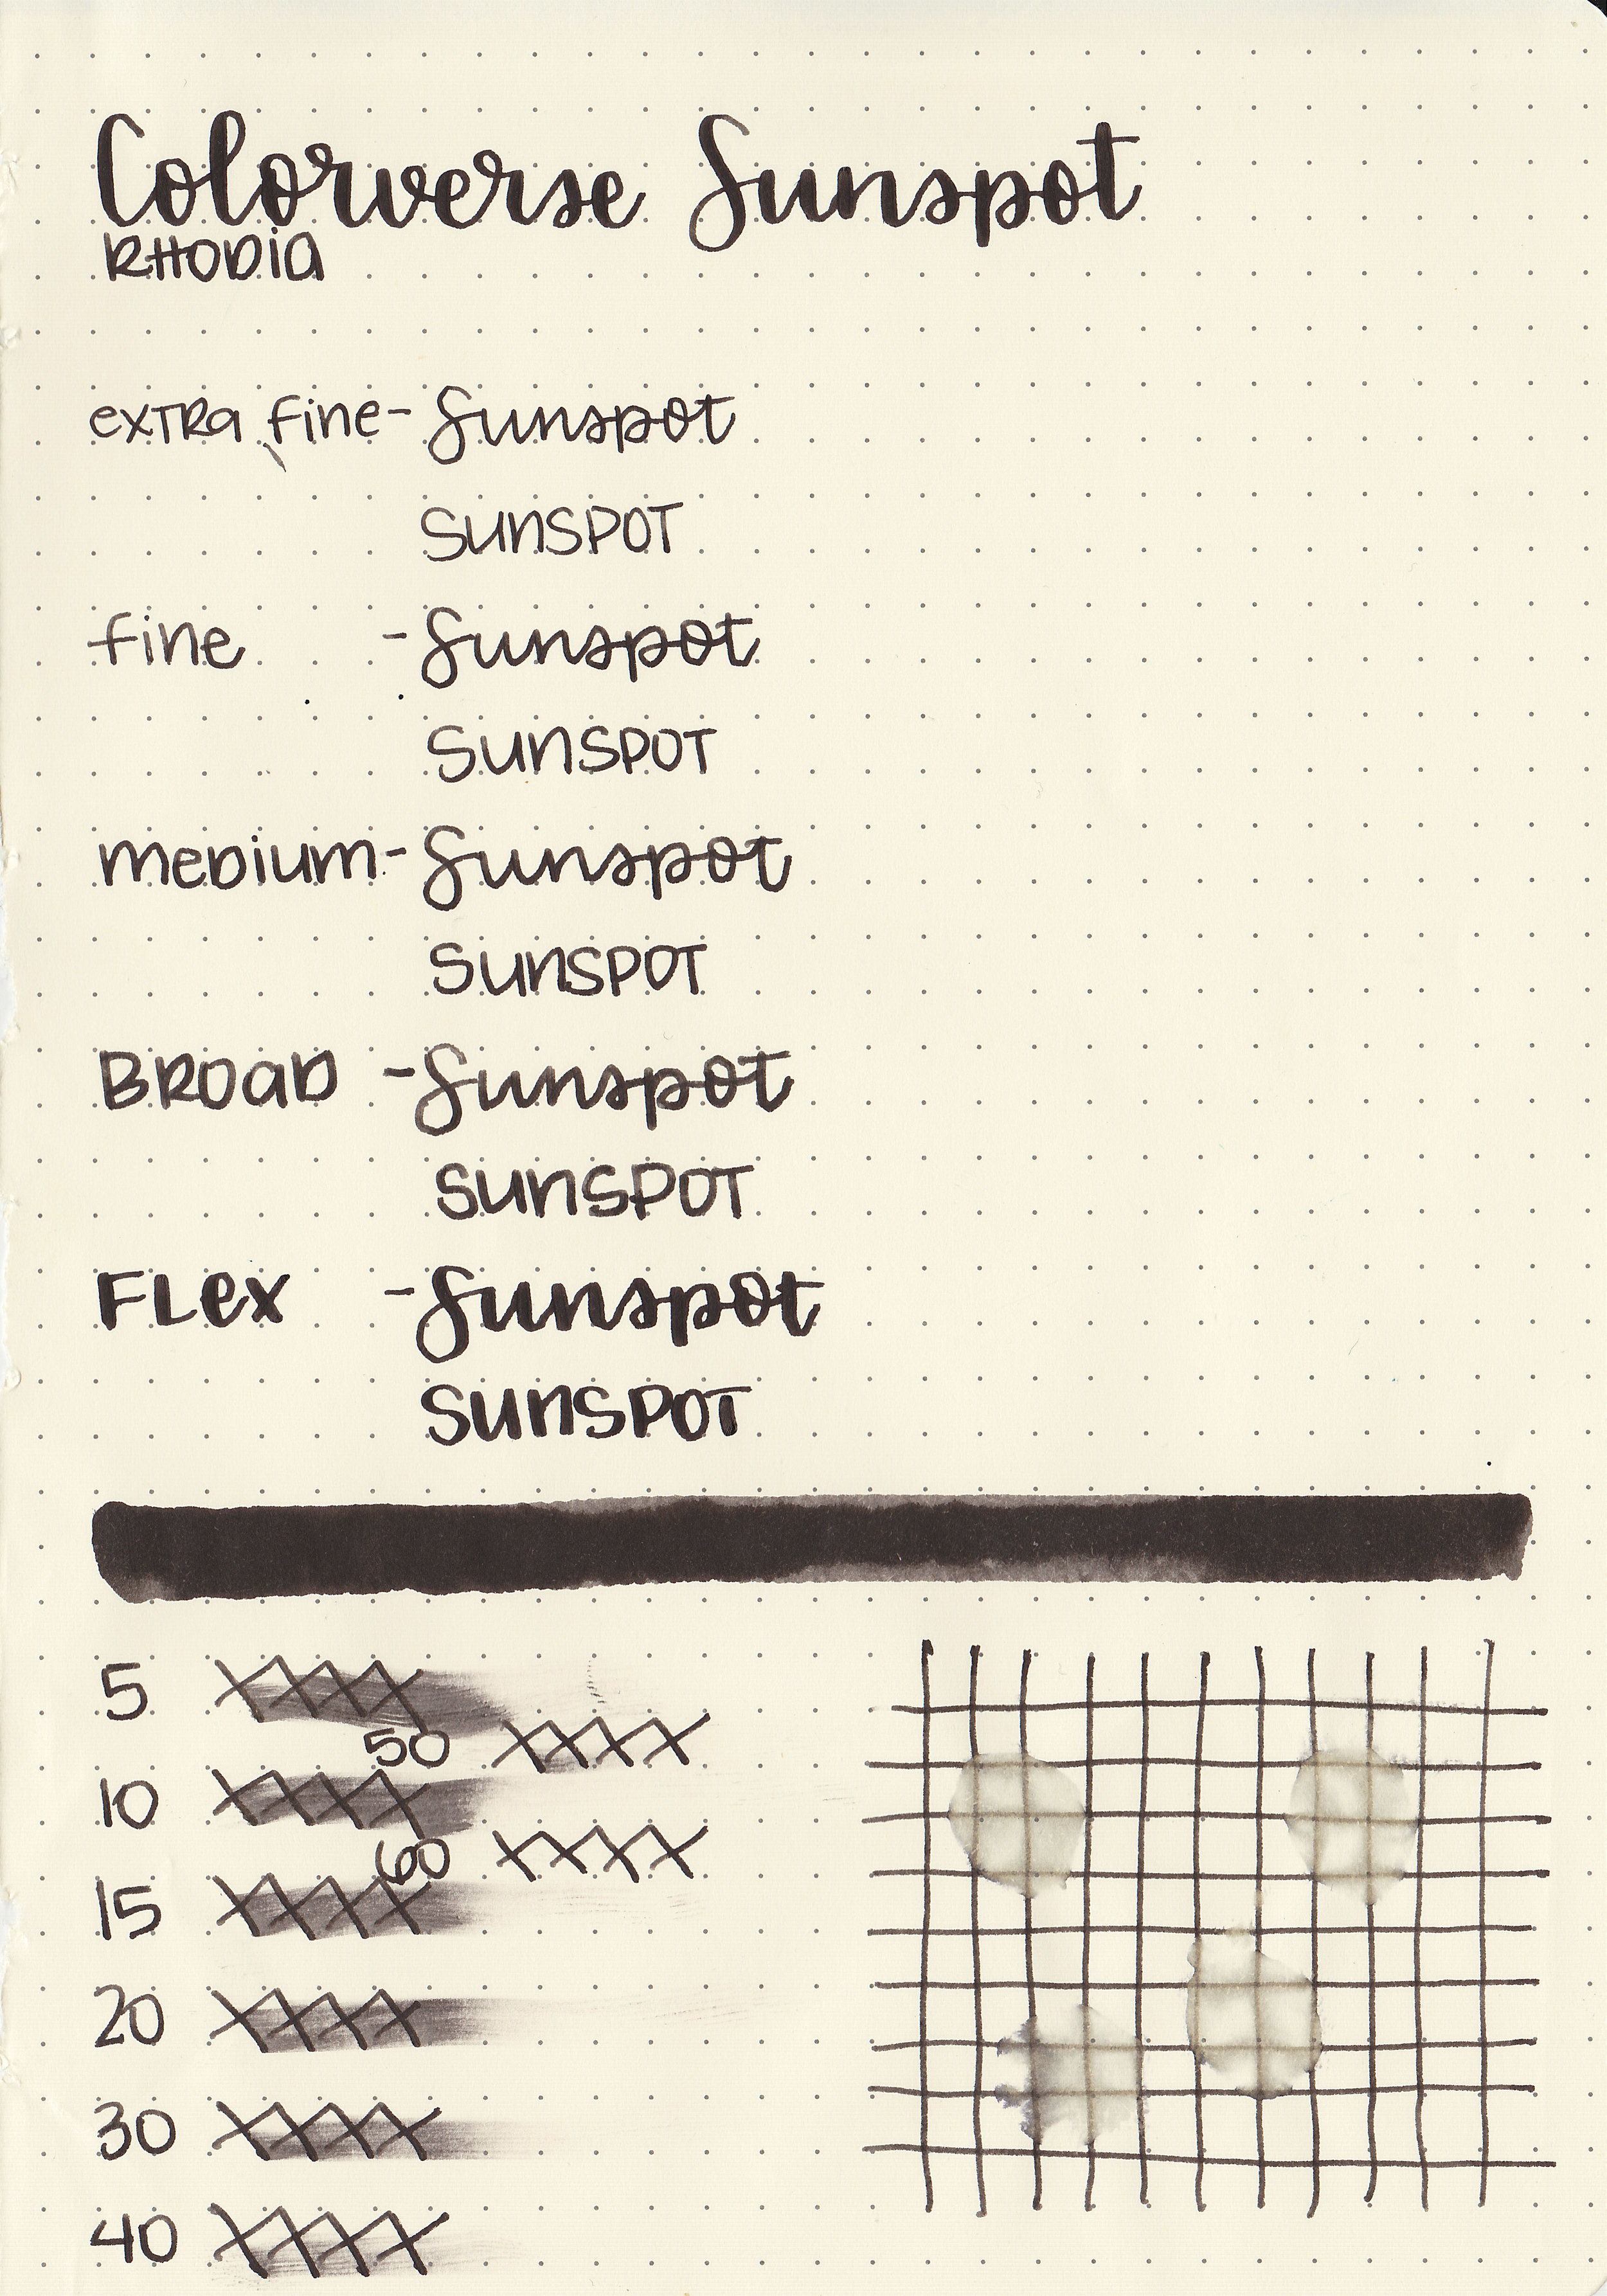 Colorverse Sunspot
RHODIA
extra fine - Sunspot
SUNSPOT
fine - Sunspot
SUNSPOT
medium - Sunspot
SUNSPOT
BROAD - Sunspot
SUNSPOT
FLex - Sunspot
SUNSPOT
5 XXXX
50 XXXX
10 XXXX
60 XXXX
15 XXXX
20 XXXX
30 XXXX
40 XXXX